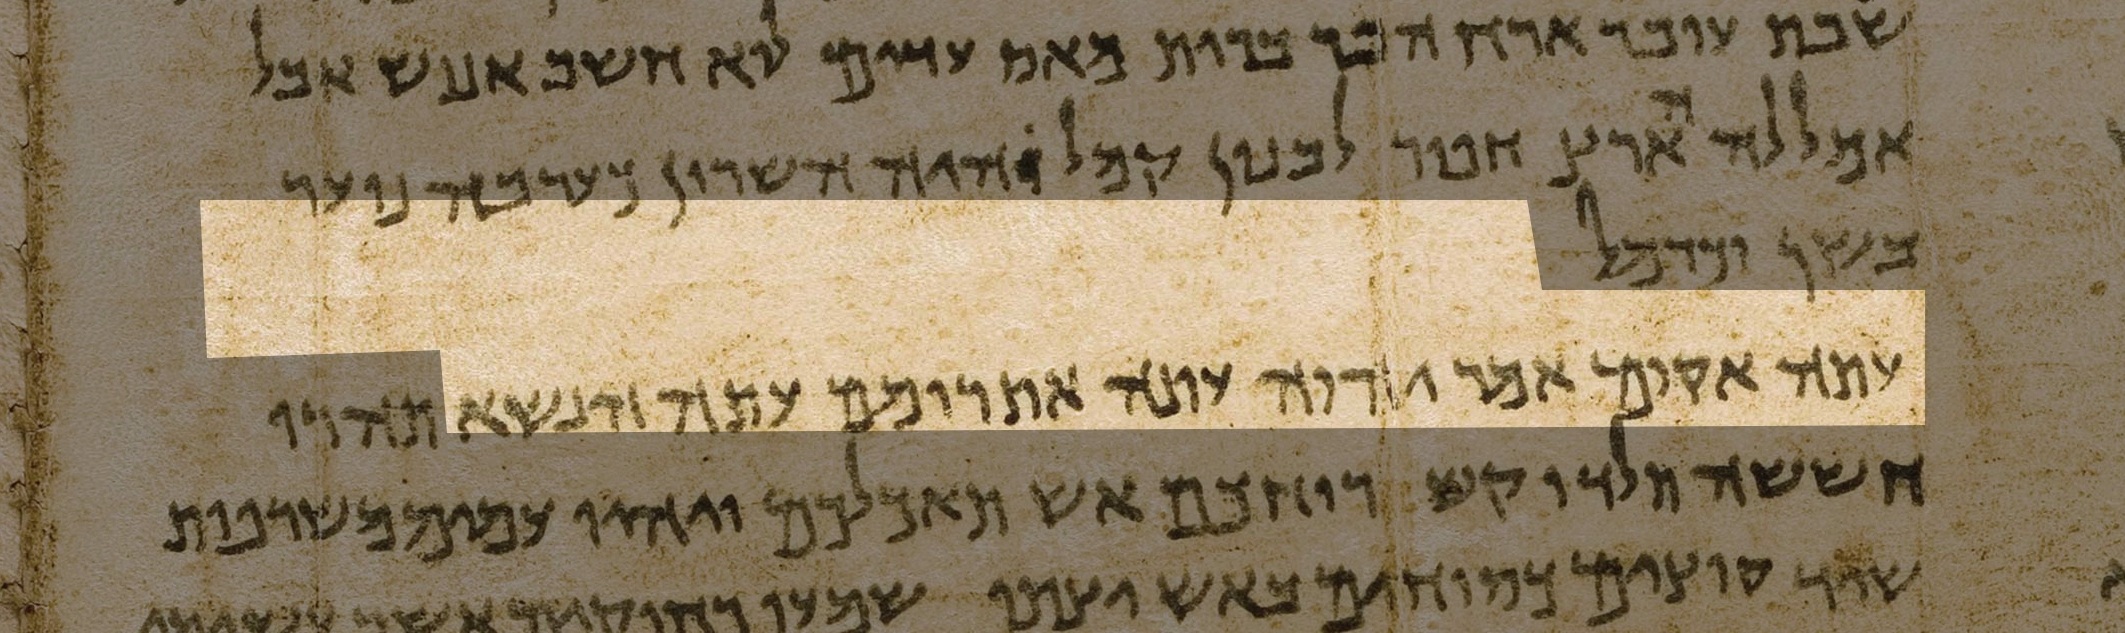 שבת עובר ארח הפר ברית מאס עדים לא חשב אנוש אבל
אמללה הארץ חפר לבנן קמל והיה השרון כערבה נוער
בשן וכרמל
עתה אקום אמר יהוה עתה אתרומם עתה אנשא תהרו
חששה תלדו קש רוחכם אש תאכלכם והיו עמים משרפות
שיד קוצים כסוחים באש יצתו שמעו רחוקים אשר